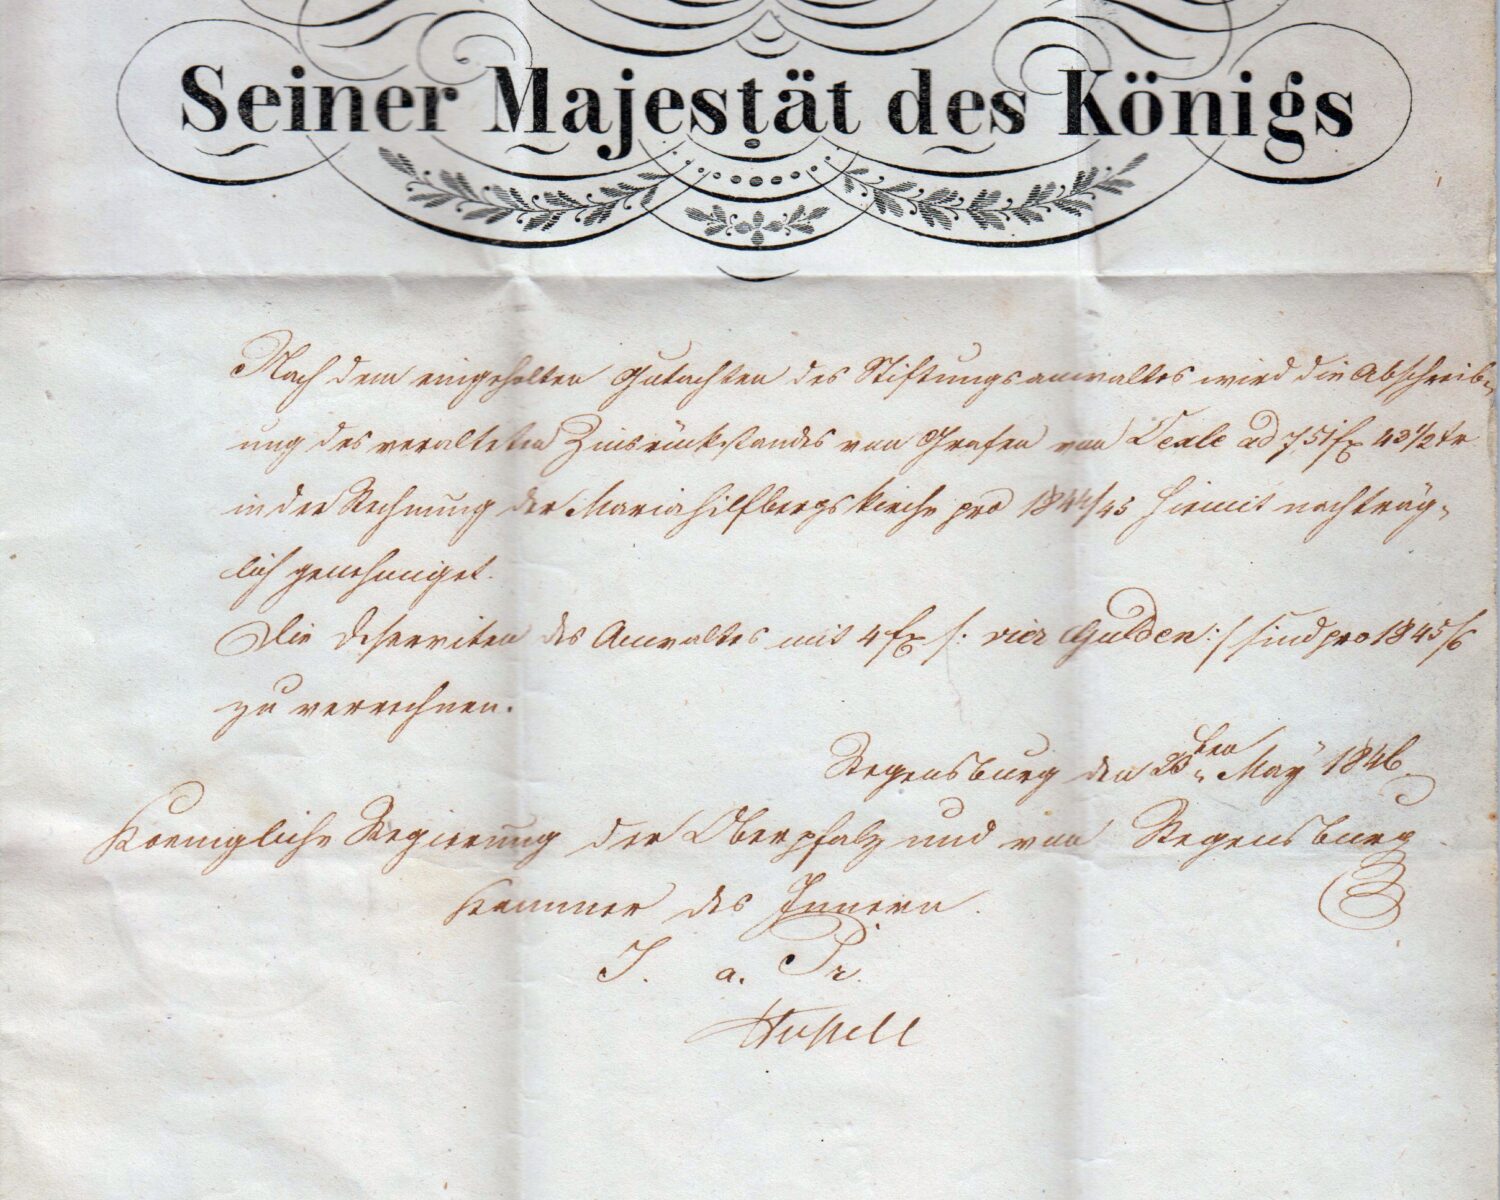 Seiner Majestät des Königs
Nach dem eingeholten Gutachten des Stiftungsanwaltes wird die Abschreib-
ung des veralteten Zinsrückstandes von Grafen von ad 751 fx 43 1/2 kr
in der Rechnung der Mariahilfbergskirche pro 1844/45 hiemit nachträg-
lich genehmiget.
Die Deserviten des Anwaltes mit 4 fx /: vier Gulden :/ sind pro 1845/6
zu verrechnen.
Regensburg den 23ten May 1846.
Koenigliche Regierung der Oberpfalz und von Regensburg
Kammer des Innern.
I. a. Pr.